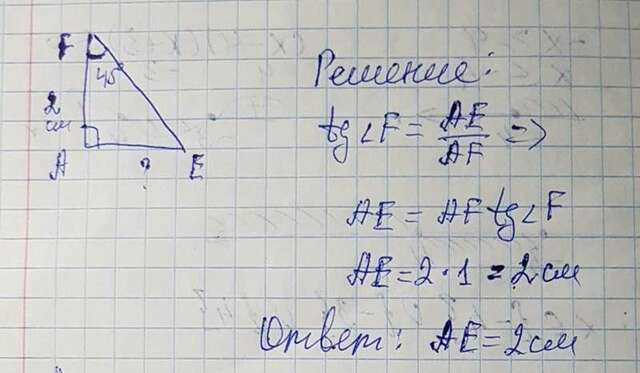 F
45°
2
см
A
?
E
Решение:
tg∠F = AE/AF =>
AE = AF tg∠F
AE = 2·1 = 2 см
Ответ: AE = 2 см